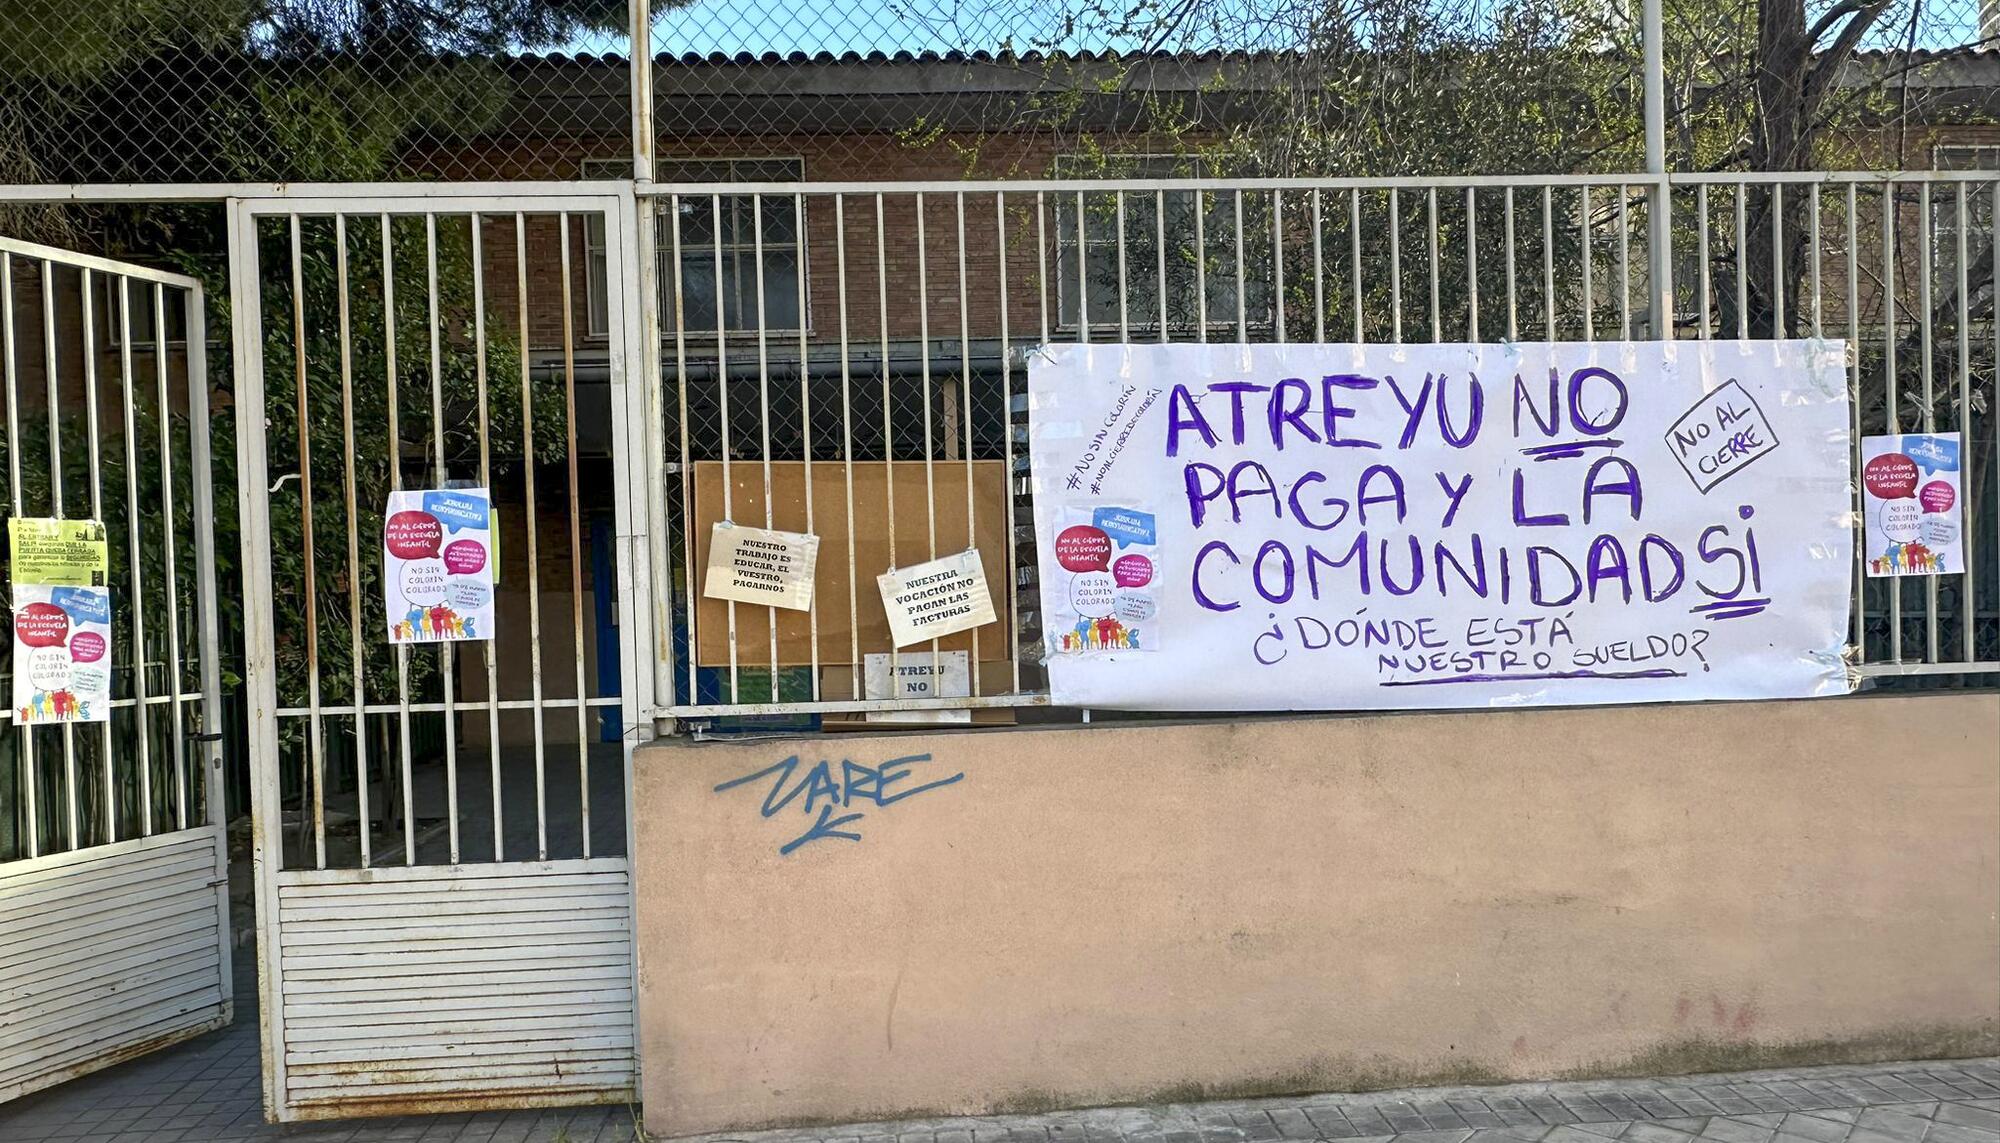 #NO SIN COLORÍN
#NOALCIERREDECOLORÍN
ATREYU NO
PAGA Y LA
COMUNIDAD SI
¿DÓNDE ESTÁ
NUESTRO SUELDO?
NO AL
CIERRE
NUESTRO
TRABAJO ES
EDUCAR, EL
VUESTRO,
PAGARNOS
NUESTRA
VOCACIÓN NO
PAGAN LAS
FACTURAS
ATREYU
NO
JORNADA
REIVINDICATIVA
NO AL CIERRE
DE LA ESCUELA
INFANTIL
NO SIN
COLORIN
COLORADO
JORNADA
REIVINDICATIVA
NO AL CIERRE
DE LA ESCUELA
INFANTIL
NO SIN
COLORIN
COLORADO
JORNADA
REIVINDICATIVA
NO AL CIERRE
DE LA ESCUELA
INFANTIL
NO SIN
COLORIN
COLORADO
JORNADA
REIVINDICATIVA
NO AL CIERRE
DE LA ESCUELA
INFANTIL
NO SIN
COLORIN
COLORADO
PUERTA QUEDA CERRADA